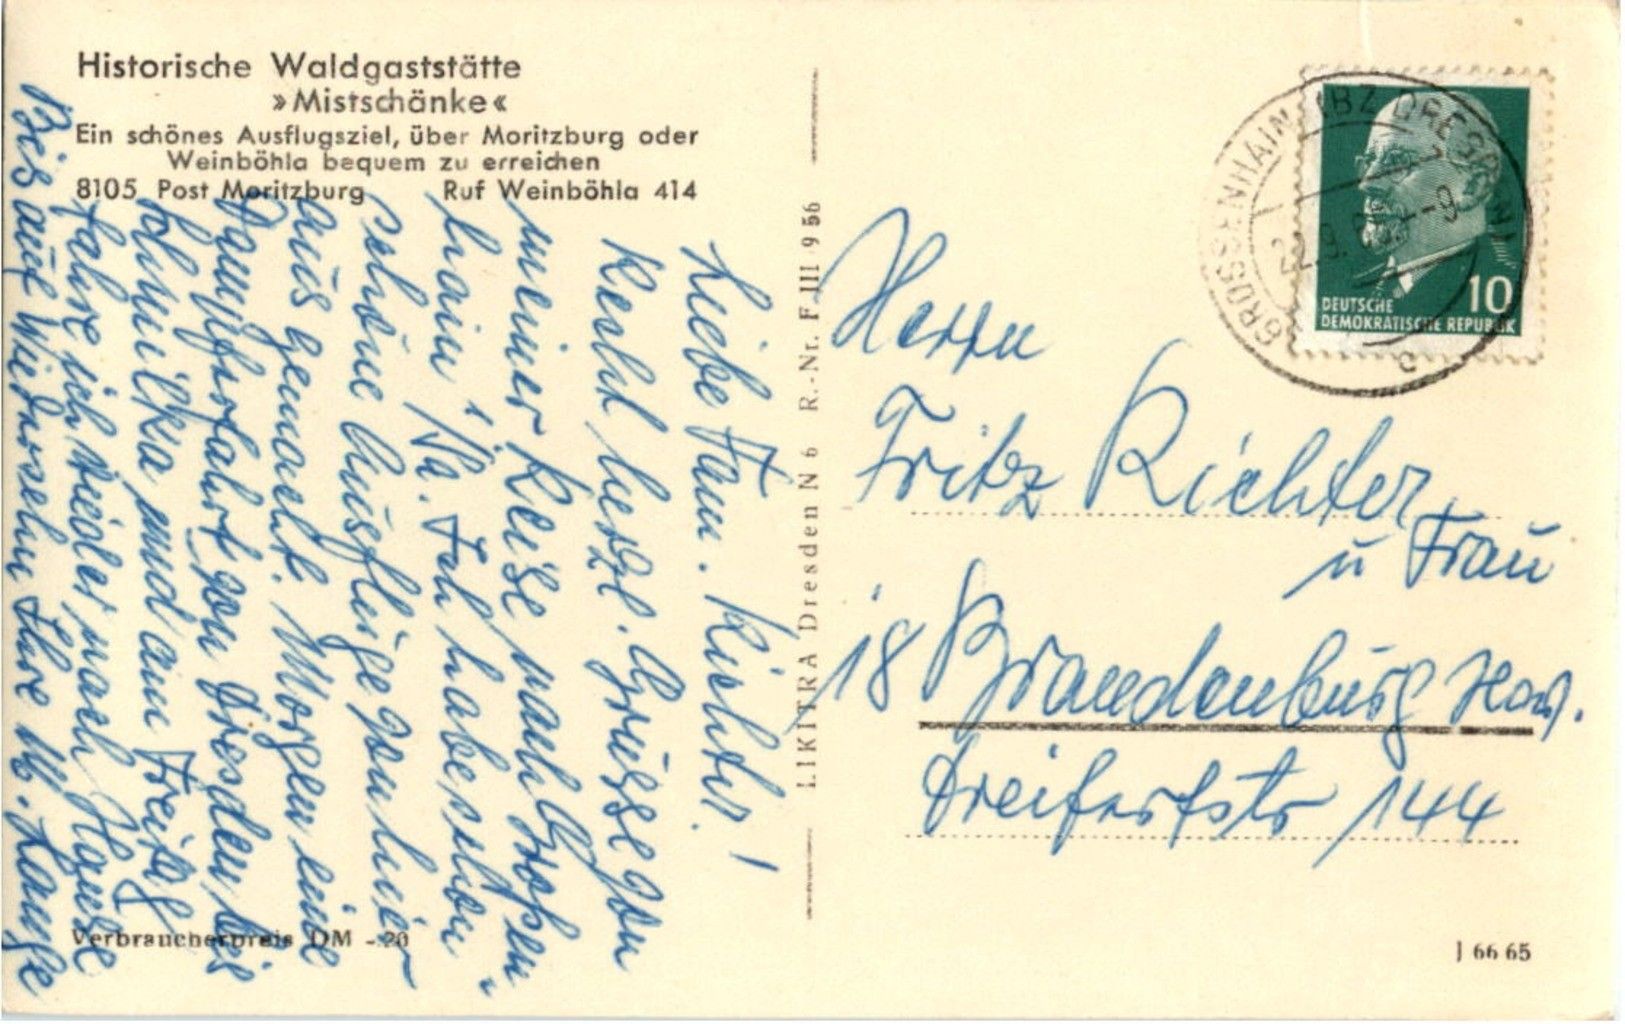 Historische Waldgaststätte
»Mistschänke«
Ein schönes Ausflugsziel, über Moritzburg oder
Weinböhla bequem zu erreichen
8105 Post Moritzburg Ruf Weinböhla 414
Liebe Fam. Richter!
Recht herzl. Grüsse von
meiner Reise nach Großen-
hain i/Sa. Ich habe schon
schöne Ausflüge von hier
aus gemacht. Morgen eine
Dampffahrt von Dresden bis
Schmilka und am Freitag
fahre ich wieder nach Hause
Bis auf Wiedersehn Ihre M. Lange
Verbraucherpreis DM -.20
LIKITRA Dresden N 6 R.-Nr. F III 956
GROSSENHAIN (BZ DRESDEN)
22.9. -9
c
DEUTSCHE
DEMOKRATISCHE REPUBLIK
10
Herrn
Fritz Richter
u Frau
18 Brandenburg Hav.
Dreifertstr 144
J 66 65